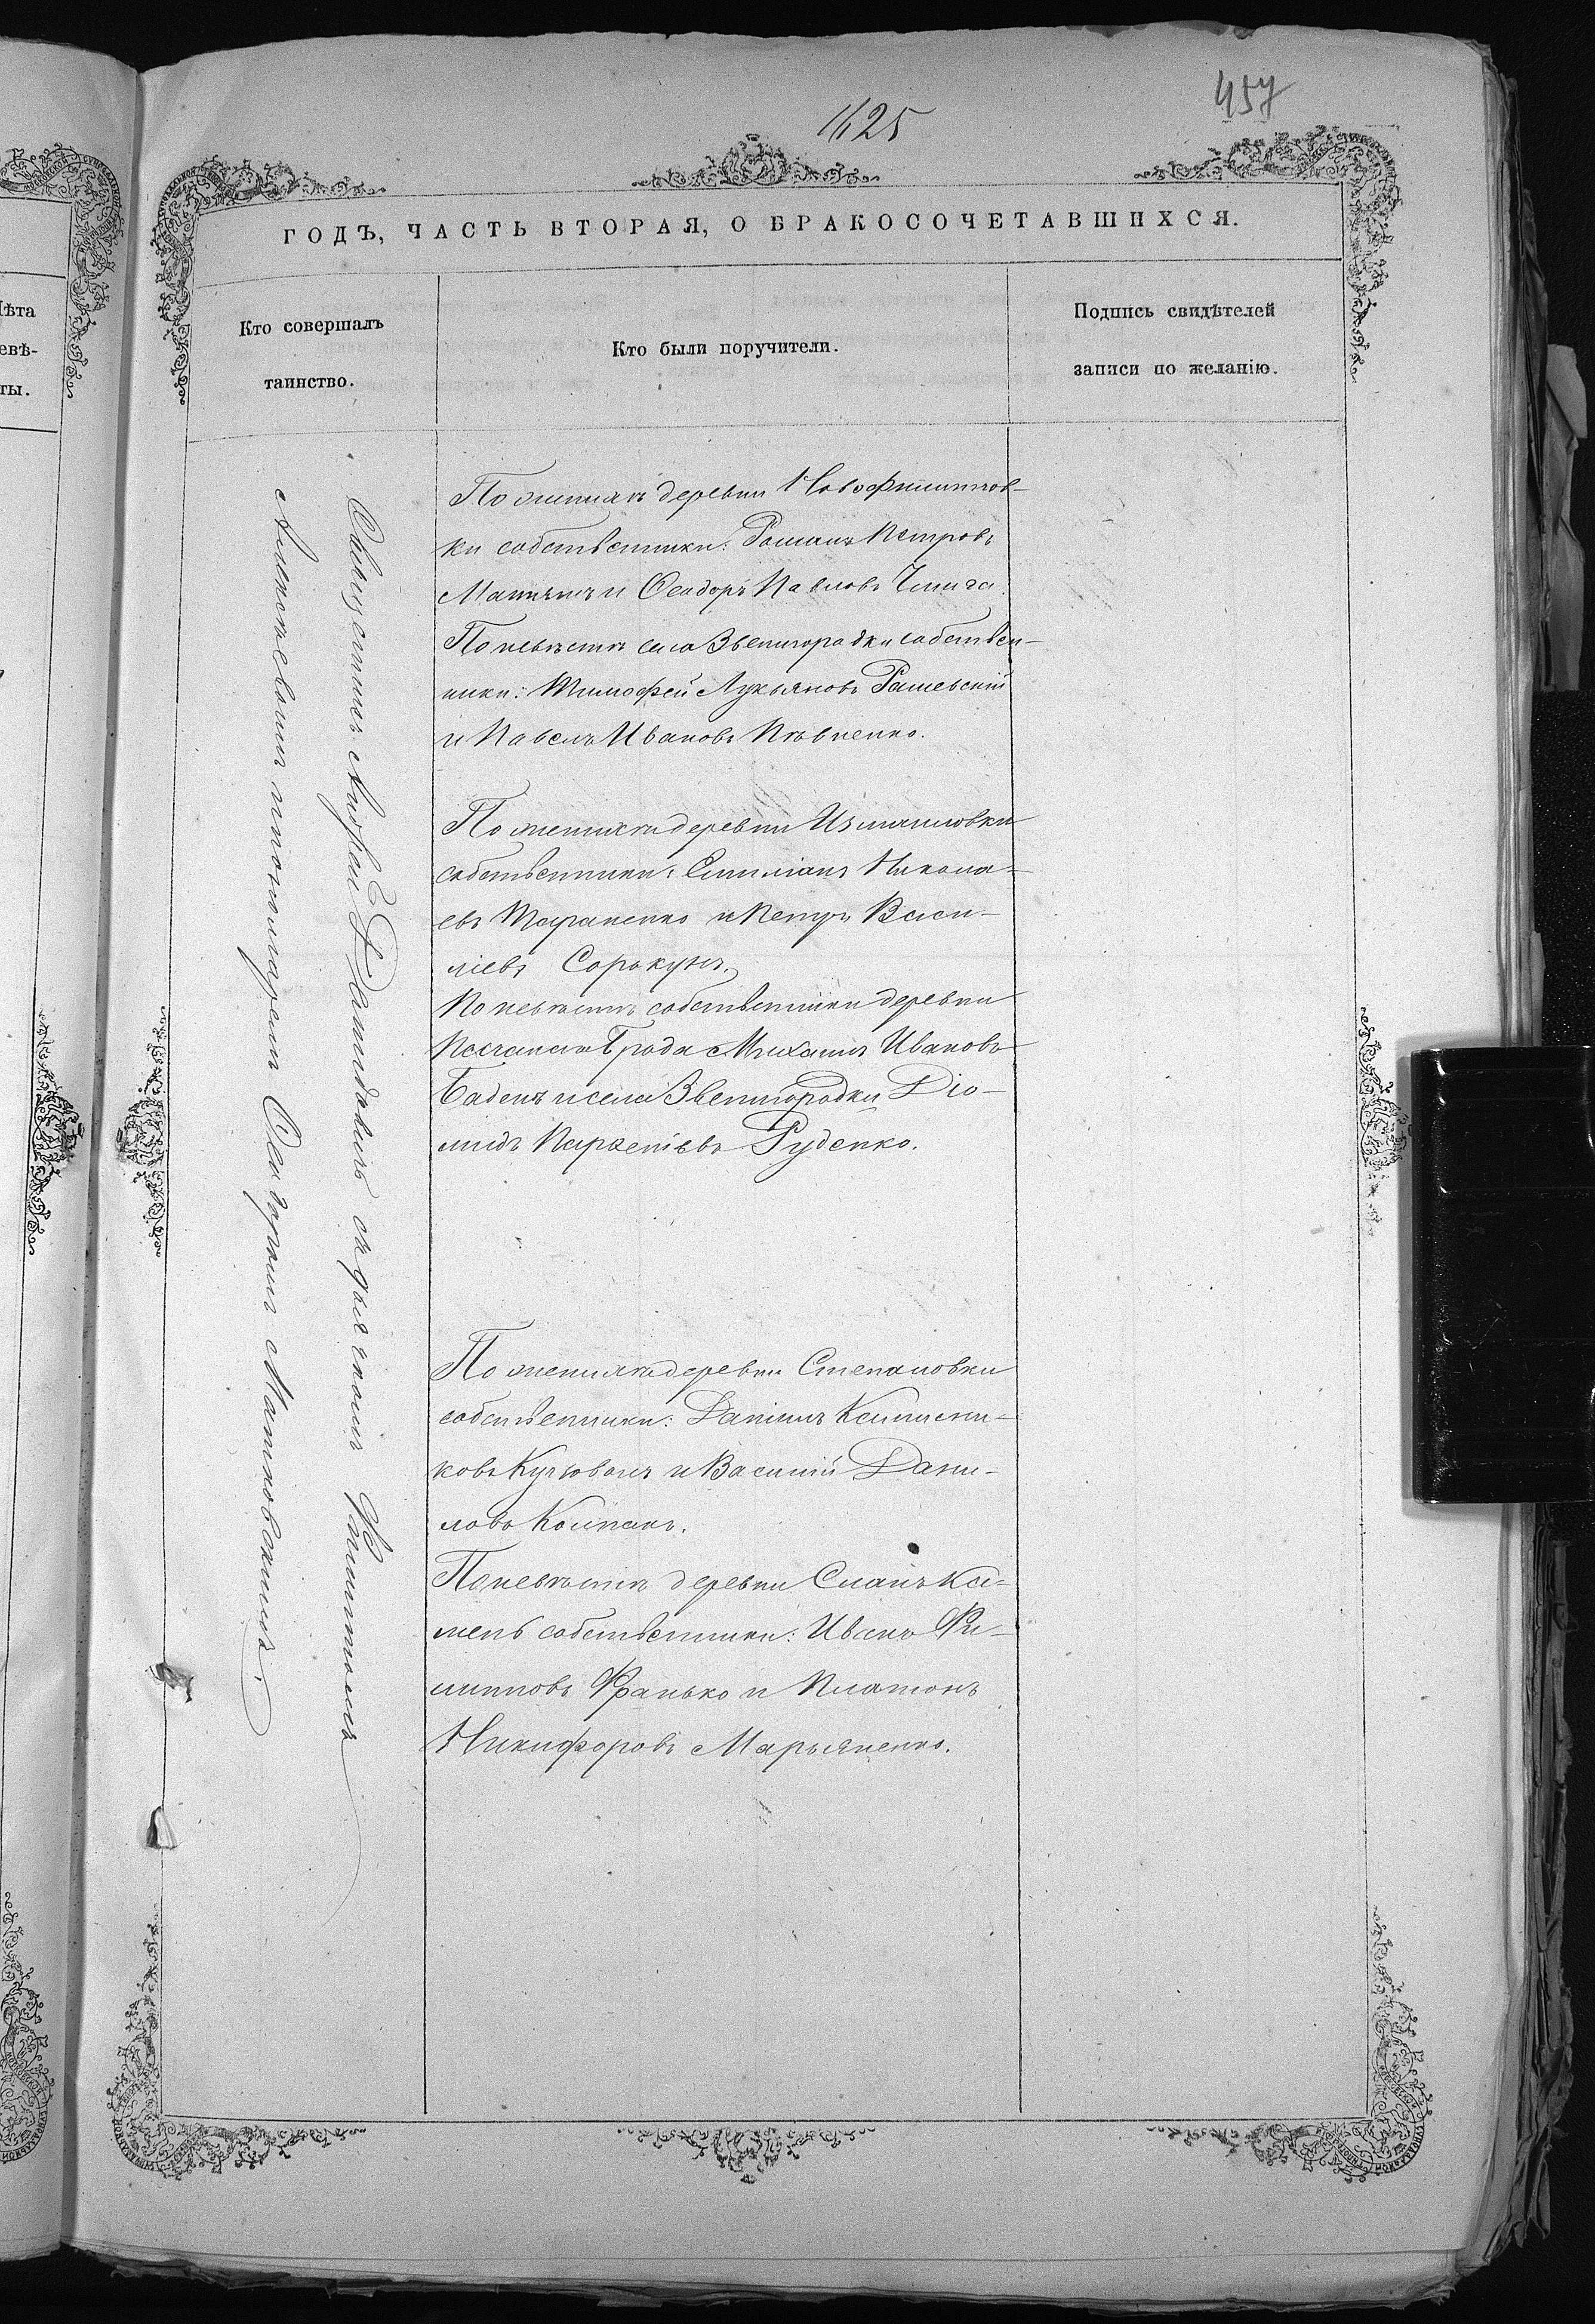 457
1625
ГОДЪ, ЧАСТЬ ВТОРАЯ, О БРАКОСОЧЕТАВШИХСЯ.
Кто совершалъ
таинство.
Кто были поручители.
Подпись свидѣтелей
записи по желанію.
Священникъ Андрей Давидовичъ съ
Ѳеодоромъ
По женихѣ деревни Новофилиппов-
ки собственники: Романъ Петровъ
и Ѳеодоръ Павловъ
По невѣстѣ села Звенигородки собствен-
ники: Тимофей Лукьяновъ Рашевскій
и Павелъ Ивановъ Пѣвненко.
По женихѣ деревни Измаиловки
собственники: Емиліанъ Никола-
евъ Тараненко и Петръ Васи-
ліевъ Сорокунъ.
По невѣстѣ собственники деревни
Песчанаго Брода Михаилъ Ивановъ
Баденъ и села Звенигородки Діо-
мидъ Руденко.
По женихѣ деревни Степановки
собственники: Даніилъ Калинни-
ковъ и Василій Дани-
ловъ
По невѣстѣ деревни Ка-
мень собственники: Иванъ Фи-
липповъ Франько и Платонъ
Никифоровъ Марьяненко.